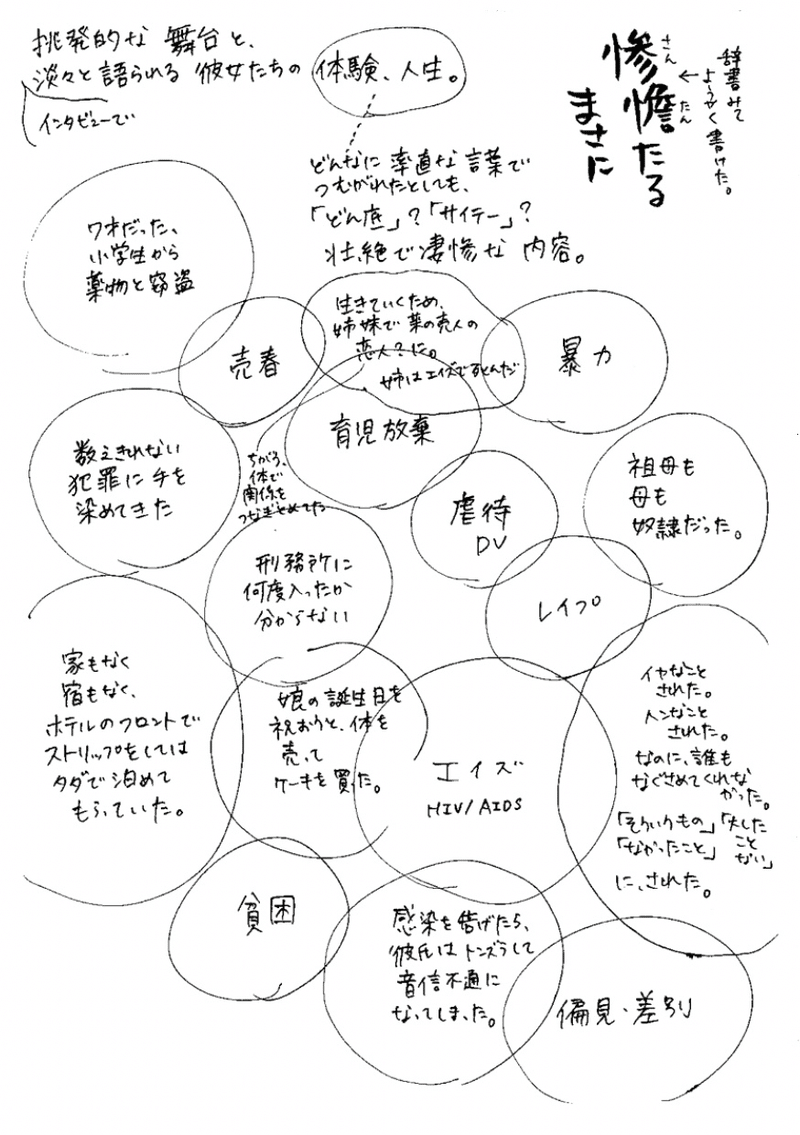 挑発的な 舞台と、
淡々と語られる 彼女たちの 体験、人生。
インタビューで
辞書みて
ようやく書けた。
さん
たん
惨憺たる
まさに
どんなに 率直な 言葉で
つむがれたとしても、
「どん底」?「サイテー」?
壮絶で凄惨な 内容。
7才だった、
小学生から
薬物と窃盗
売春
生きていくため、
姉妹で薬の売人の
恋人?に。
姉はエイズで死んだ
暴力
育児放棄
数えきれない
犯罪に手を
染めてきた
ちがう、
体で
関係を
つなぎとめてた
虐待
DV
祖母も
母も
奴隷だった。
刑務所に
何度入ったか
分からない
レイプ
家もなく
宿もなく、
ホテルのフロントで
ストリップをしては
タダで泊めて
もらっていた。
娘の誕生日を
祝おうと、体を
売って
ケーキを買った。
エイズ
HIV/AIDS
イヤなこと
された。
ヘンなこと
された。
なのに、誰も
なぐさめてくれな
かった。
「そういうもの」「大した
こと
ない」
「なかったこと」
に、された。
貧困
感染を告げたら、
彼氏はトンズラして
音信不通に
なってしまった。
偏見・差別